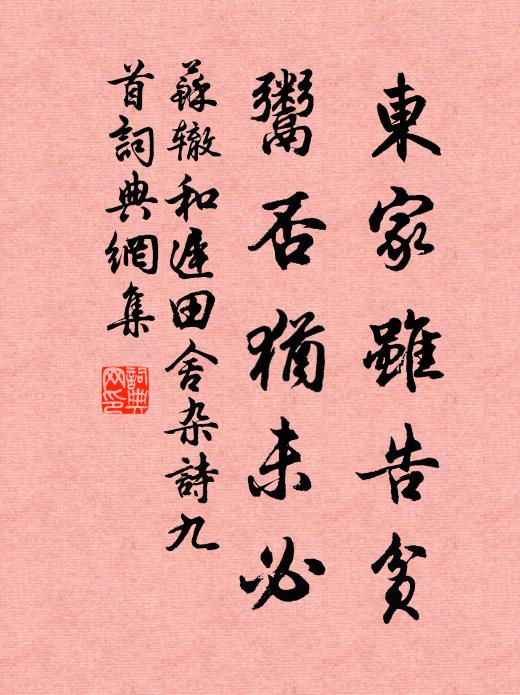 東家雖告貧
鬻否猶未必
蘇辙和遲田舍杂詩九
首詞典網集
詞典網印